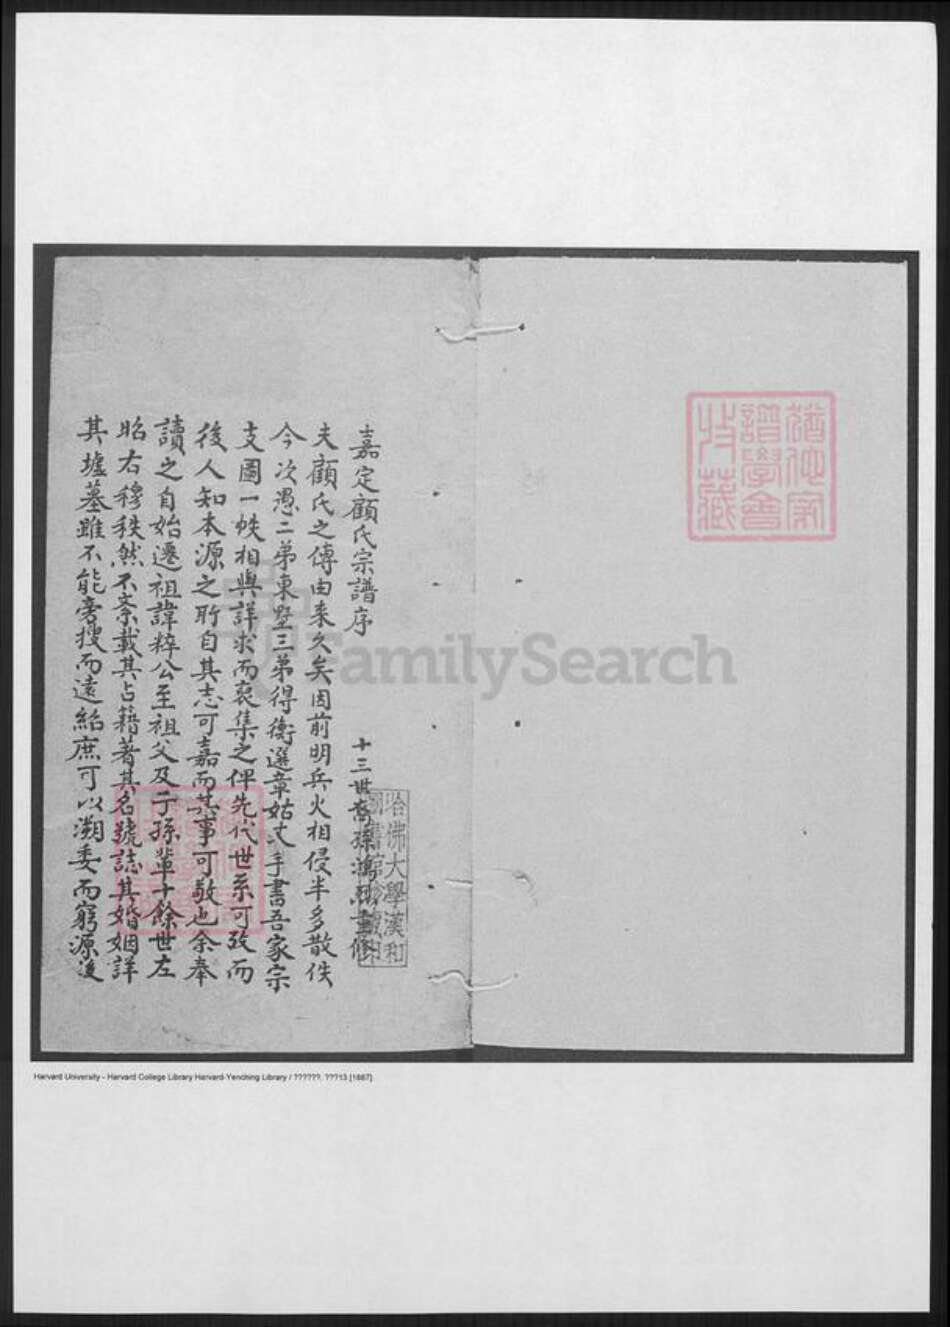 嘉定顧氏宗譜序
十三世裔孫鴻烈重修
夫顧氏之傳由来久矣因前明兵火相侵半多散佚
今次愚二弟東墅三弟得衡選章姑丈手書吾家宗
支圖一帙相與詳求而裒集之俾先代世系可攷而
後人知本源之所自其志可嘉而其事可敬也余奉
讀之自始遷祖諱粹公至祖父及子孫輩十餘世左
昭右穆秩然不紊載其占籍著其名號誌其婚姻詳
其墟墓雖不能旁搜而遠紹庶可以溯委而窮源後
哈佛大學漢和
圖書館珍藏印
FamilySearch
Harvard University - Harvard College Library Harvard-Yenching Library / ??????. ???13 [1887].